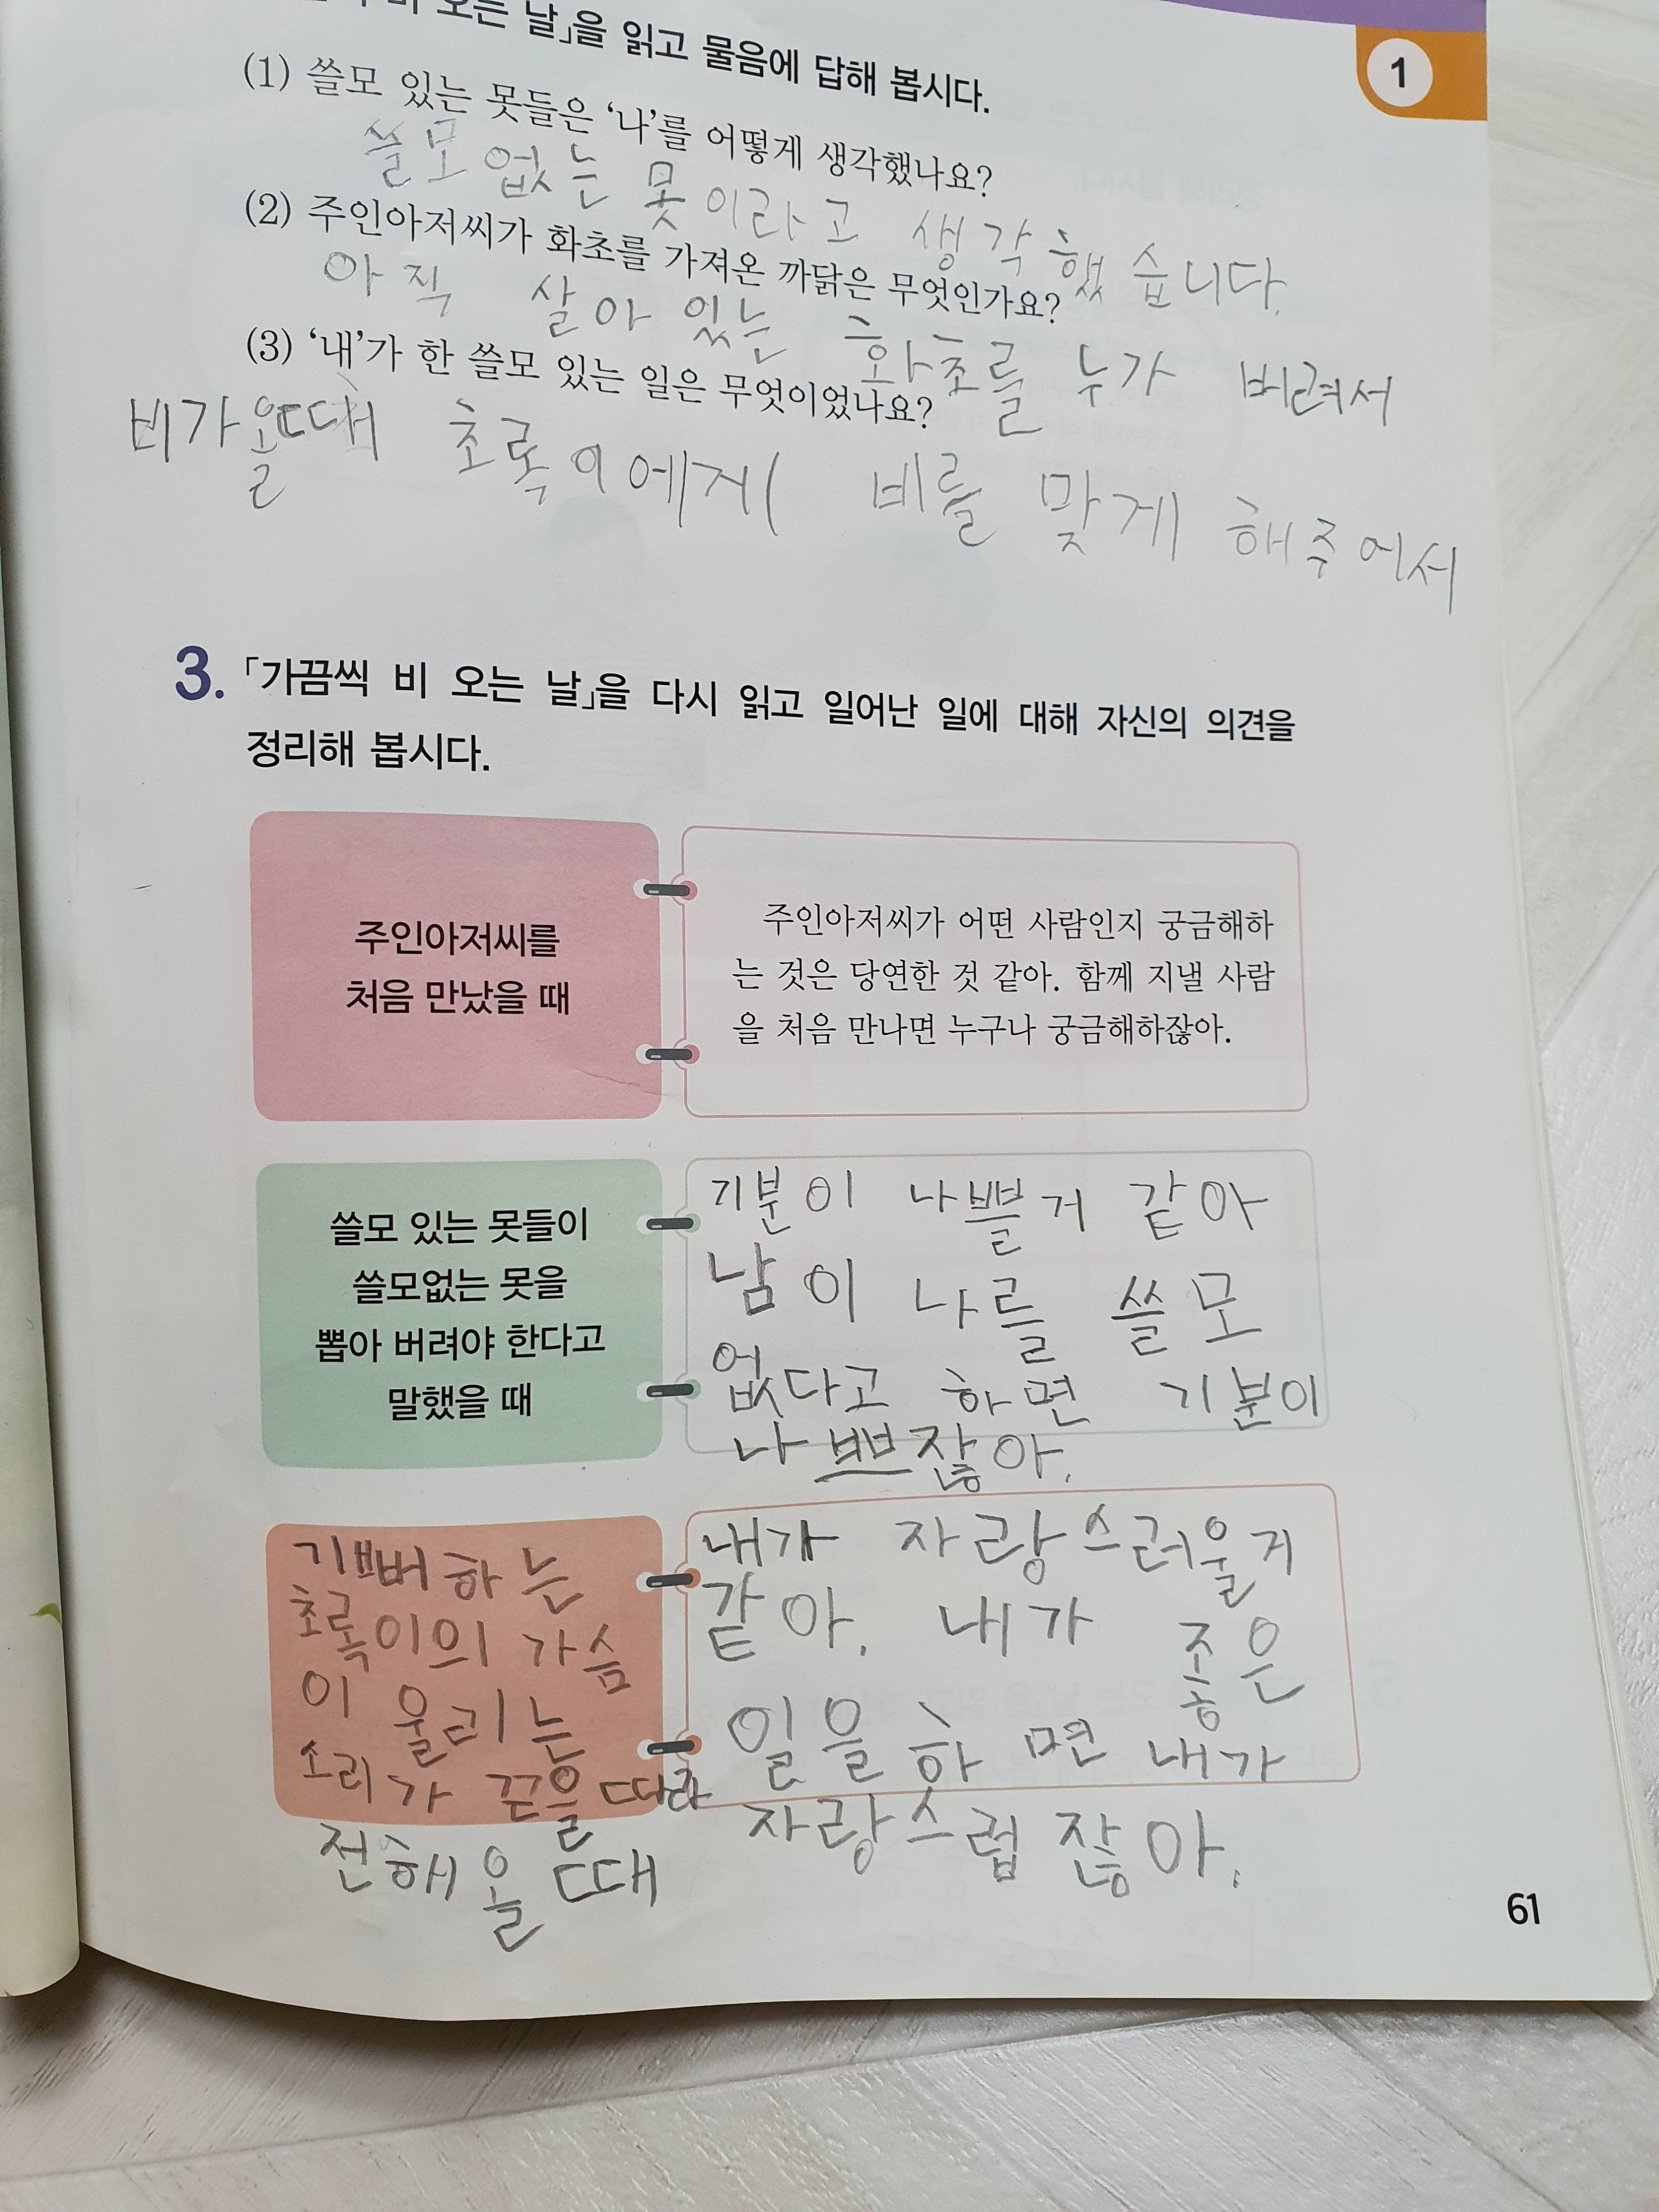 비 오는 날」을 읽고 물음에 답해 봅시다.
1
(1) 쓸모 있는 못들은 ‘나’를 어떻게 생각했나요?
쓸모없는 못이라고 생각했습니다.
(2) 주인아저씨가 화초를 가져온 까닭은 무엇인가요?
아직 살아 있는 화초를 누가 버려서
(3) ‘내’가 한 쓸모 있는 일은 무엇이었나요?
비가올때 초록이에게 비를 맞게 해주어서
3. 「가끔씩 비 오는 날」을 다시 읽고 일어난 일에 대해 자신의 의견을
정리해 봅시다.
주인아저씨를
처음 만났을 때
주인아저씨가 어떤 사람인지 궁금해하
는 것은 당연한 것 같아. 함께 지낼 사람
을 처음 만나면 누구나 궁금해하잖아.
쓸모 있는 못들이
쓸모없는 못을
뽑아 버려야 한다고
말했을 때
기분이 나쁠거 같아
남이 나를 쓸모
없다고 하면 기분이
나쁘잖아.
기뻐하는
초록이의 가슴
이 울리는
소리가 끈을 따라
전해올때
내가 자랑스러울거
같아. 내가 좋은
일을 하면 내가
자랑스럽잖아.
61